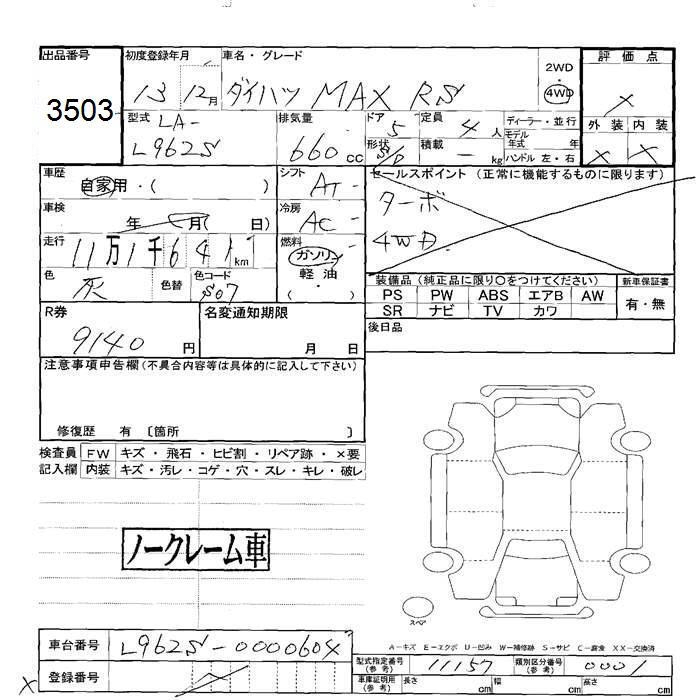 出品番号
3503
初度登録年月
13 12月
車名・グレード
ダイハツ MAX RS
2WD
4WD
評価点
×
外装 内装
× ×
型式 LA-
L962S
排気量
660 cc
ドア 5
形状
定員 4 人
積載 ー kg
ディーラー・並行
モデル年式 年
ハンドル 左・右
車歴
自家用・( )
シフト
AT -
セールスポイント (正常に機能するものに限ります)
ターボ
4WD
車検
年 月( 日)
冷房
AC -
走行
11万1千641km
燃料
ガソリン
軽油
・( )
色
灰
色替
色コード
S07
装備品 (純正品に限り○をつけてください)
PS PW ABS エアB AW
SR ナビ TV カワ
新車保証書
有・無
R券
9140 円
名変通知期限
月 日
後日品
注意事項申告欄(不具合内容等は具体的に記入して下さい)
修復歴 有 〔箇所 〕
検査員記入欄
FW キズ・飛石・ヒビ割・リペア跡・×要
内装 キズ・汚レ・コゲ・穴・スレ・キレ・破レ
ノークレーム車
スペア
A-キズ E-エクボ U-凹み W-補修跡 S-サビ C-腐食 XX-交換済
車台番号 L962S-0000604
登録番号
×
型式指定番号(参考) 11157
類別区分番号(参考) 0001
車庫証明用(参考) 長さ cm 幅 cm 高さ cm